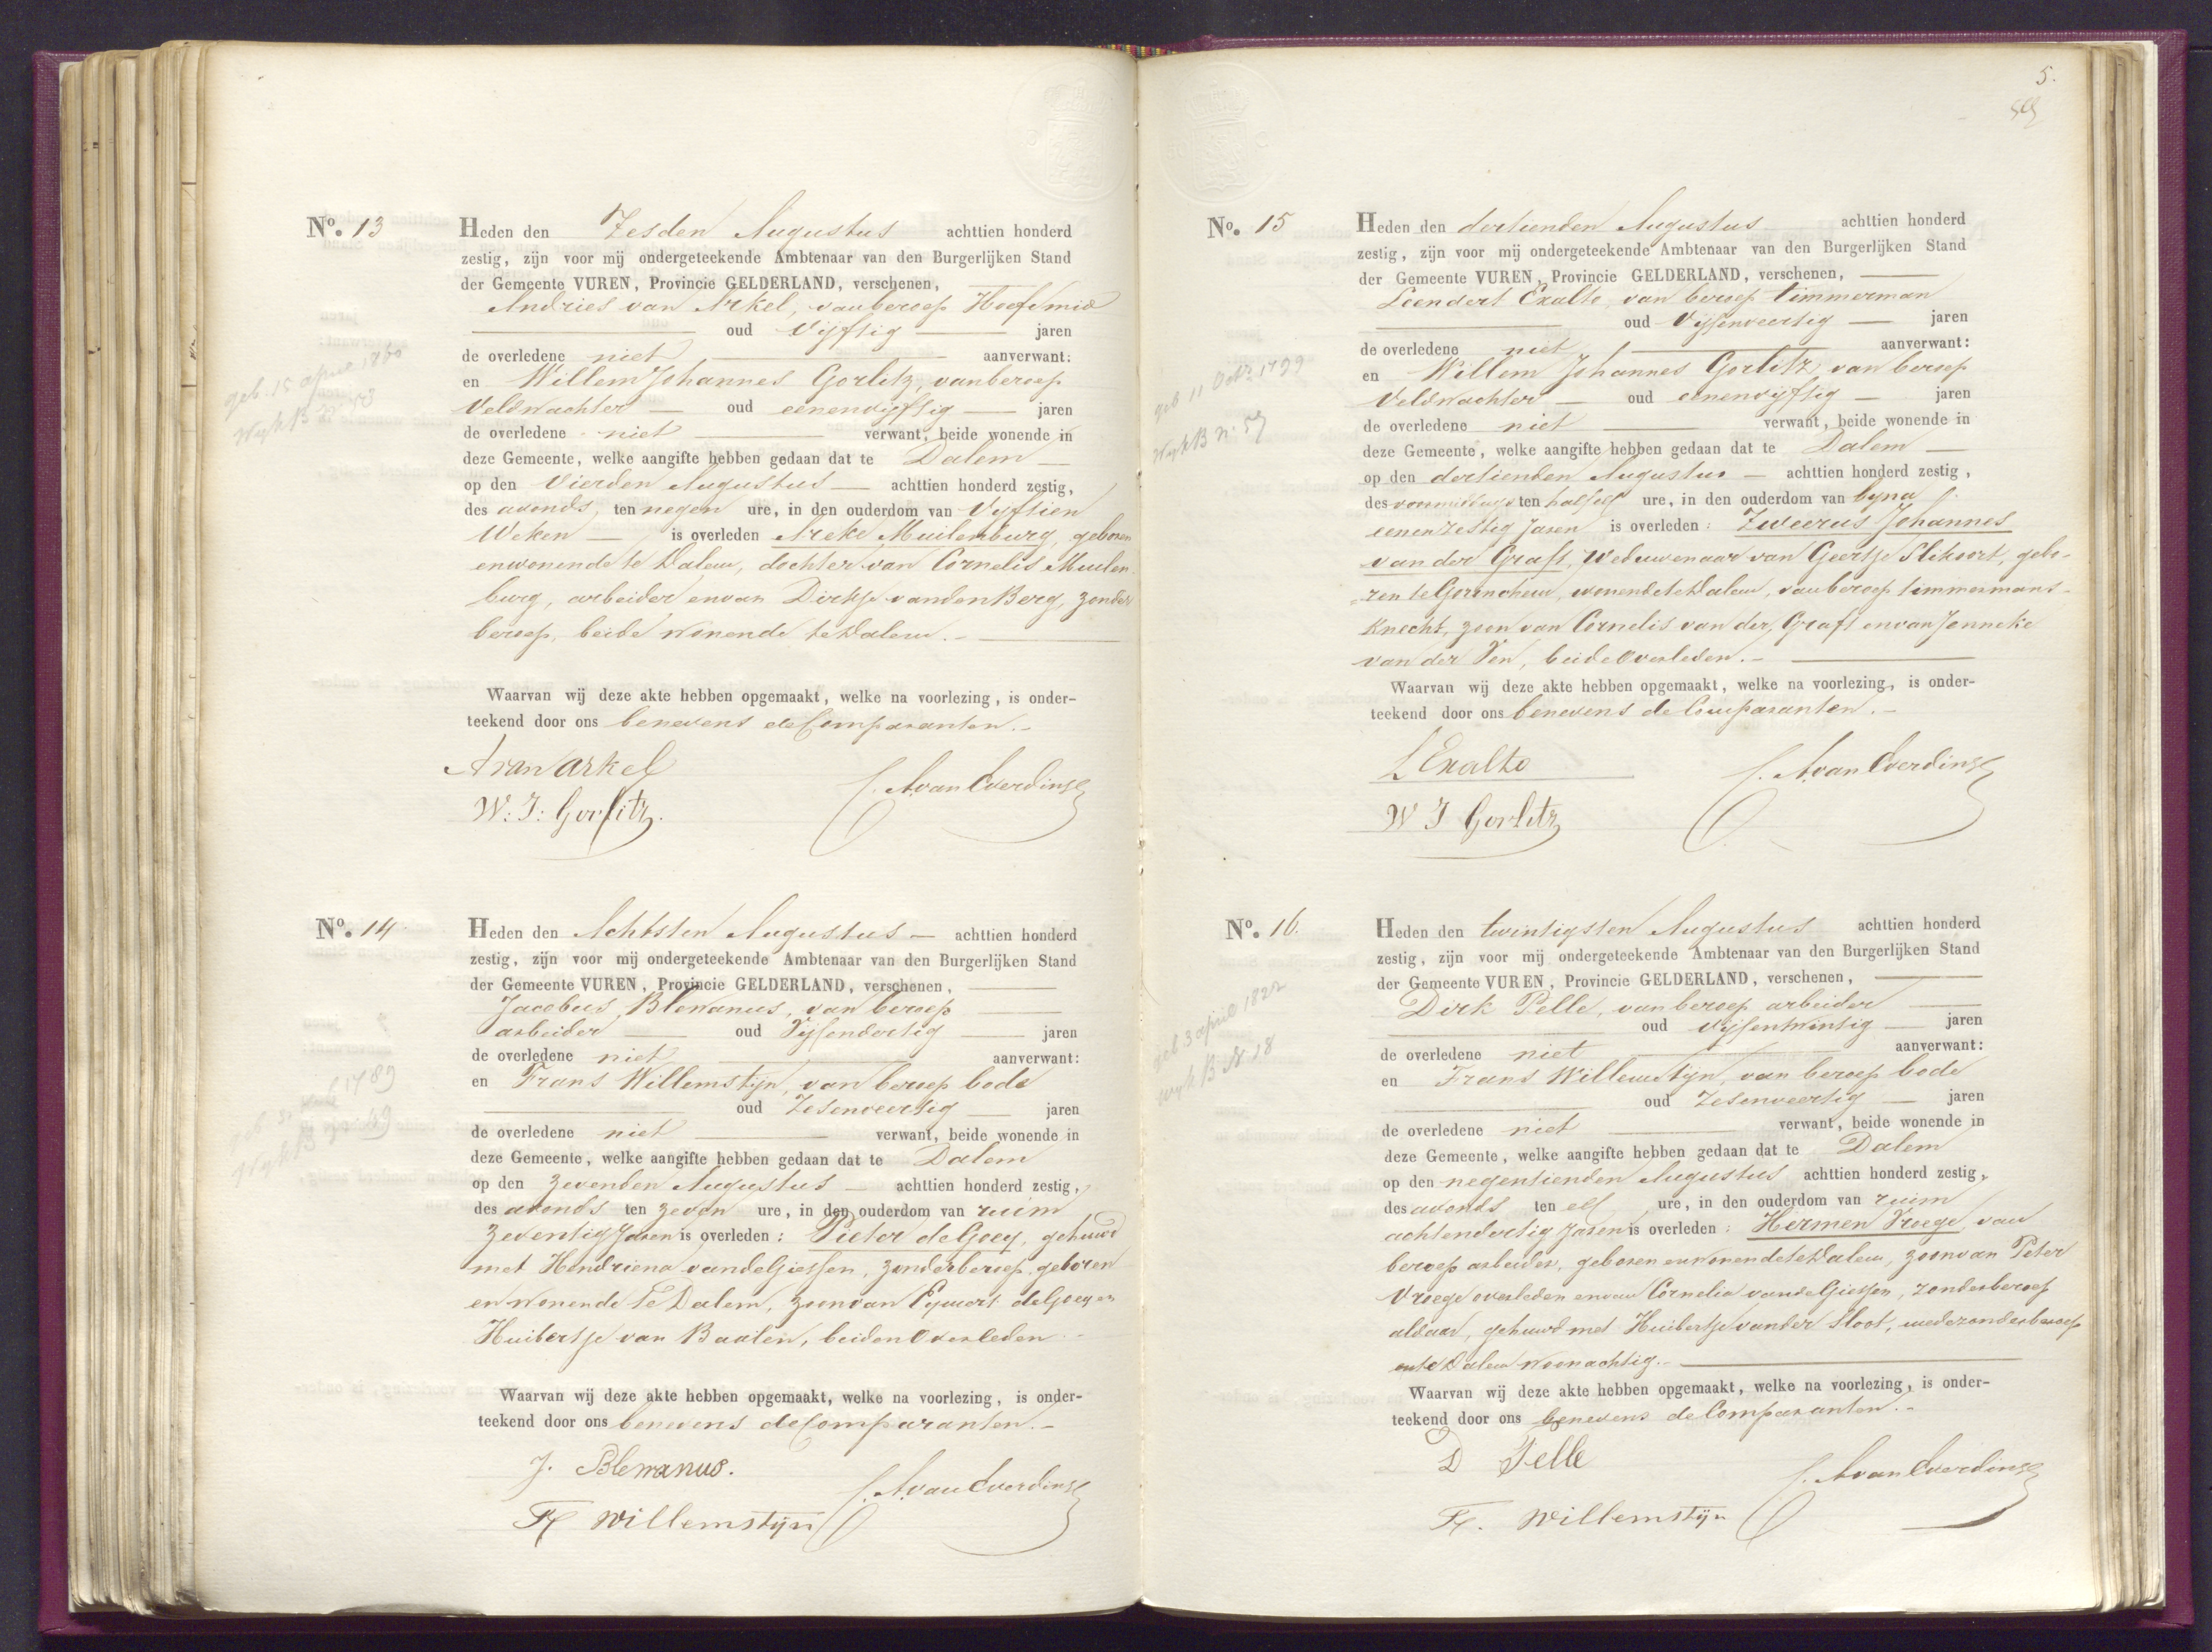 No. 13
Heden den Zesden Augustus achttien honderd
zestig, zijn voor mij ondergeteekende Ambtenaar van den Burgerlijken Stand
der Gemeente VUREN, Provincie GELDERLAND, verschenen,
Andries van Arkel, van beroep Hoefsmid
oud Vijftig jaren
de overledene niet aanverwant:
en Willem Johannes Gorlitz, van beroep
Veldwachter oud eenenvijftig jaren
de overledene niet verwant, beide wonende in
deze Gemeente, welke aangifte hebben gedaan dat te Dalem
op den Vierden Augustus achttien honderd zestig,
des avonds, ten negen ure, in den ouderdom van Vijftien
Weken is overleden Areke Muilenburg, geboren
en wonende te Dalem, dochter van Cornelis Muilen
burg, arbeider en van Dirkje van den Berg, zonder
beroep, beide wonende te Dalem.
Waarvan wij deze akte hebben opgemaakt, welke na voorlezing, is onder-
teekend door ons benevens de Comparanten.
A van Arkel
W: J: Gorlitz.
C. A. van Everdinge
geb. 15 april 1860
Wyk B n. 53
No. 14
Heden den Achtsten Augustus achttien honderd
zestig, zijn voor mij ondergeteekende Ambtenaar van den Burgerlijken Stand
der Gemeente VUREN, Provincie GELDERLAND, verschenen,
Jacobus Blewanus, van beroep
arbeider oud Vijfendertig jaren
de overledene niet aanverwant:
en Frans Willemstijn, van beroep bode
oud Zesenveertig jaren
de overledene niet verwant, beide wonende in
deze Gemeente, welke aangifte hebben gedaan dat te Dalem
op den Zevenden Augustus achttien honderd zestig,
des avonds ten zeven ure, in den ouderdom van ruim
Zeventig Jaren is overleden: Pieter de Goey, gehuwd
met Hendriena van de Giessen, zonder beroep, geboren
en wonende te Dalem, zoon van Egmert de Goey en
Huibertje van Baalen, beiden Overleden.
Waarvan wij deze akte hebben opgemaakt, welke na voorlezing, is onder-
teekend door ons benevens de Comparanten.
J. Blewanus.
F Willemstijn
C. A. van Everdinge
1789
Wyk B
5.
No. 15
Heden den dertienden Augustus achttien honderd
zestig, zijn voor mij ondergeteekende Ambtenaar van den Burgerlijken Stand
der Gemeente VUREN, Provincie GELDERLAND, verschenen,
Leendert Exalto, van beroep timmerman
oud Vijfenveertig jaren
de overledene niet aanverwant:
en Willem Johannes Gorlitz, van beroep
Veldwachter oud eenenvijftig jaren
de overledene niet verwant, beide wonende in
deze Gemeente, welke aangifte hebben gedaan dat te Dalem
op den dertienden Augustus achttien honderd zestig,
des voormiddags ten half elf ure, in den ouderdom van byna
eenenzestig Jaren is overleden: Zweerus Johannes
van der Graft, Weduwenaar van Geertje Slikoort, gebo-
ren te Gorinchem, wonende te Dalem, van beroep timmermans-
knecht, zoon van Cornelis van der Graft en van Jenneke
van der Ven, beide Overleden.
Waarvan wij deze akte hebben opgemaakt, welke na voorlezing, is onder-
teekend door ons benevens de Comparanten.
L Exalto
W J Gorlitz
C. A. van Everdinge
geb 11 Octr 1799
Wyk B n. 57
No. 16.
Heden den twintigsten Augustus achttien honderd
zestig, zijn voor mij ondergeteekende Ambtenaar van den Burgerlijken Stand
der Gemeente VUREN, Provincie GELDERLAND, verschenen,
Dirk Pelle, van beroep arbeider
oud vijfentwintig jaren
de overledene niet aanverwant:
en Frans Willemstijn, van beroep bode
oud Zesenveertig jaren
de overledene niet verwant, beide wonende in
deze Gemeente, welke aangifte hebben gedaan dat te Dalem
op den negentienden Augustus achttien honderd zestig,
des avonds ten elf ure, in den ouderdom van ruim
achtendertig Jaren is overleden: Hermen Vroege, van
beroep arbeider, geboren en wonende te Dalem, zoon van Peter
Vroege overleden en van Cornelia van de Giessen, zonder beroep
aldaar, gehuwd met Huibertje van der Sloot, mede zonder beroep
en te Dalem woonachtig.
Waarvan wij deze akte hebben opgemaakt, welke na voorlezing, is onder-
teekend door ons benevens de Comparanten.
D Pelle
F. Willemstijn
C. A. van Everdinge
geb 3 april 1822
wyk B N. 28